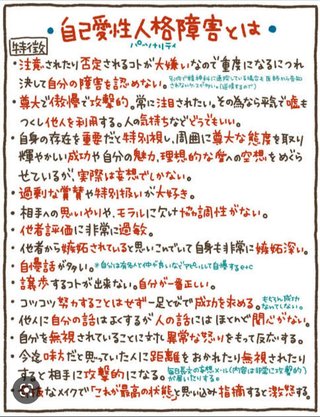 自己愛性人格障害とは
パーソナリティ
特徴
・注意されたり否定されるコトが大嫌いなので重度になるにつれ
決して自分の障害を認めない。
・尊大で傲慢で攻撃的。常に注目されたい。その為なら平気で嘘も
つくし他人を利用する。人の気持ちなどどうでもいい。
・自身の存在を重要だと特別視し、周囲に尊大な態度を取り
輝やかしい成功や自分の魅力、理想的な愛への空想をめぐら
せているが、実際は妄想でしかない。
・過剰な賞賛や特別扱いが大好き。
・相手への思いやりや、モラルに欠け協調性がない。
・他者評価に非常に過敏。
・他者から嫉妬されていると思いこんでいて自身も非常に嫉妬深い。
・自慢話が多い。
・譲歩するコトが出来ない。自分が一番正しい。
・コツコツ努力することはせず一足とびで成功を求める。
もちろん成功
しない
・他人に自分の話はよくするが人の話にはほとんど関心がない。
・自分を無視されていることに対し異常な怒りをもって反応する。
・今迄味方だと思っていた人に距離をおかれたり無視されたり
すると相手に攻撃的になる。
なメイクで「これが最高の状態」と思い込み指摘すると激怒する。